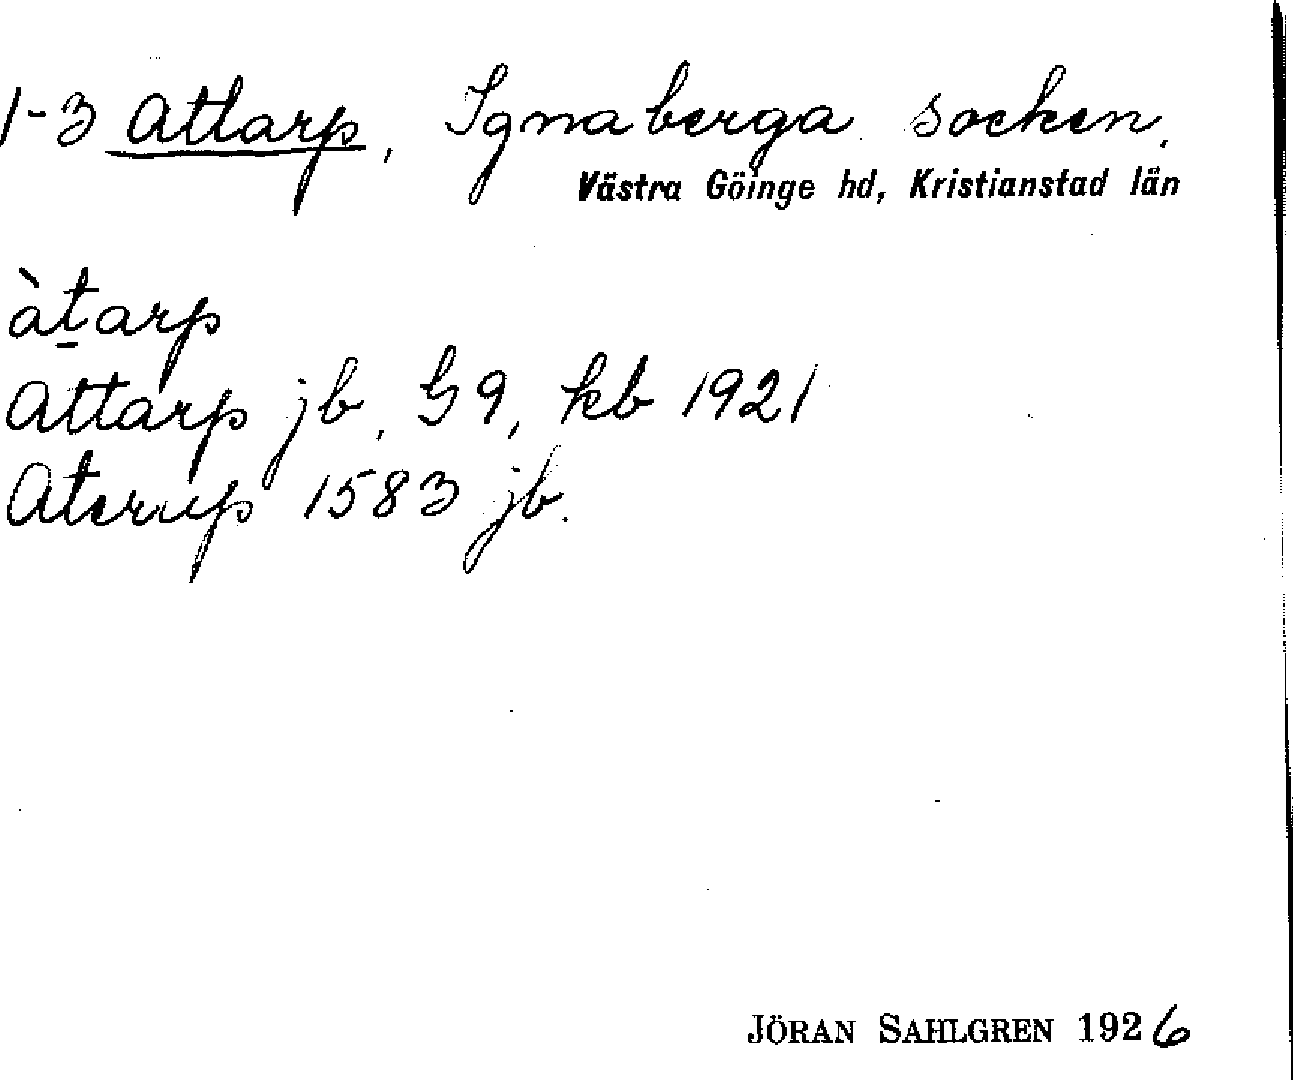 1-3 Attarp, Ignaberga socken,
Västra Göinge hd, Kristianstad län
àt̠arp
Attarp jb, G9, kb 1921
Aterup 1583 jb.
JÖRAN SAHLGREN 1926